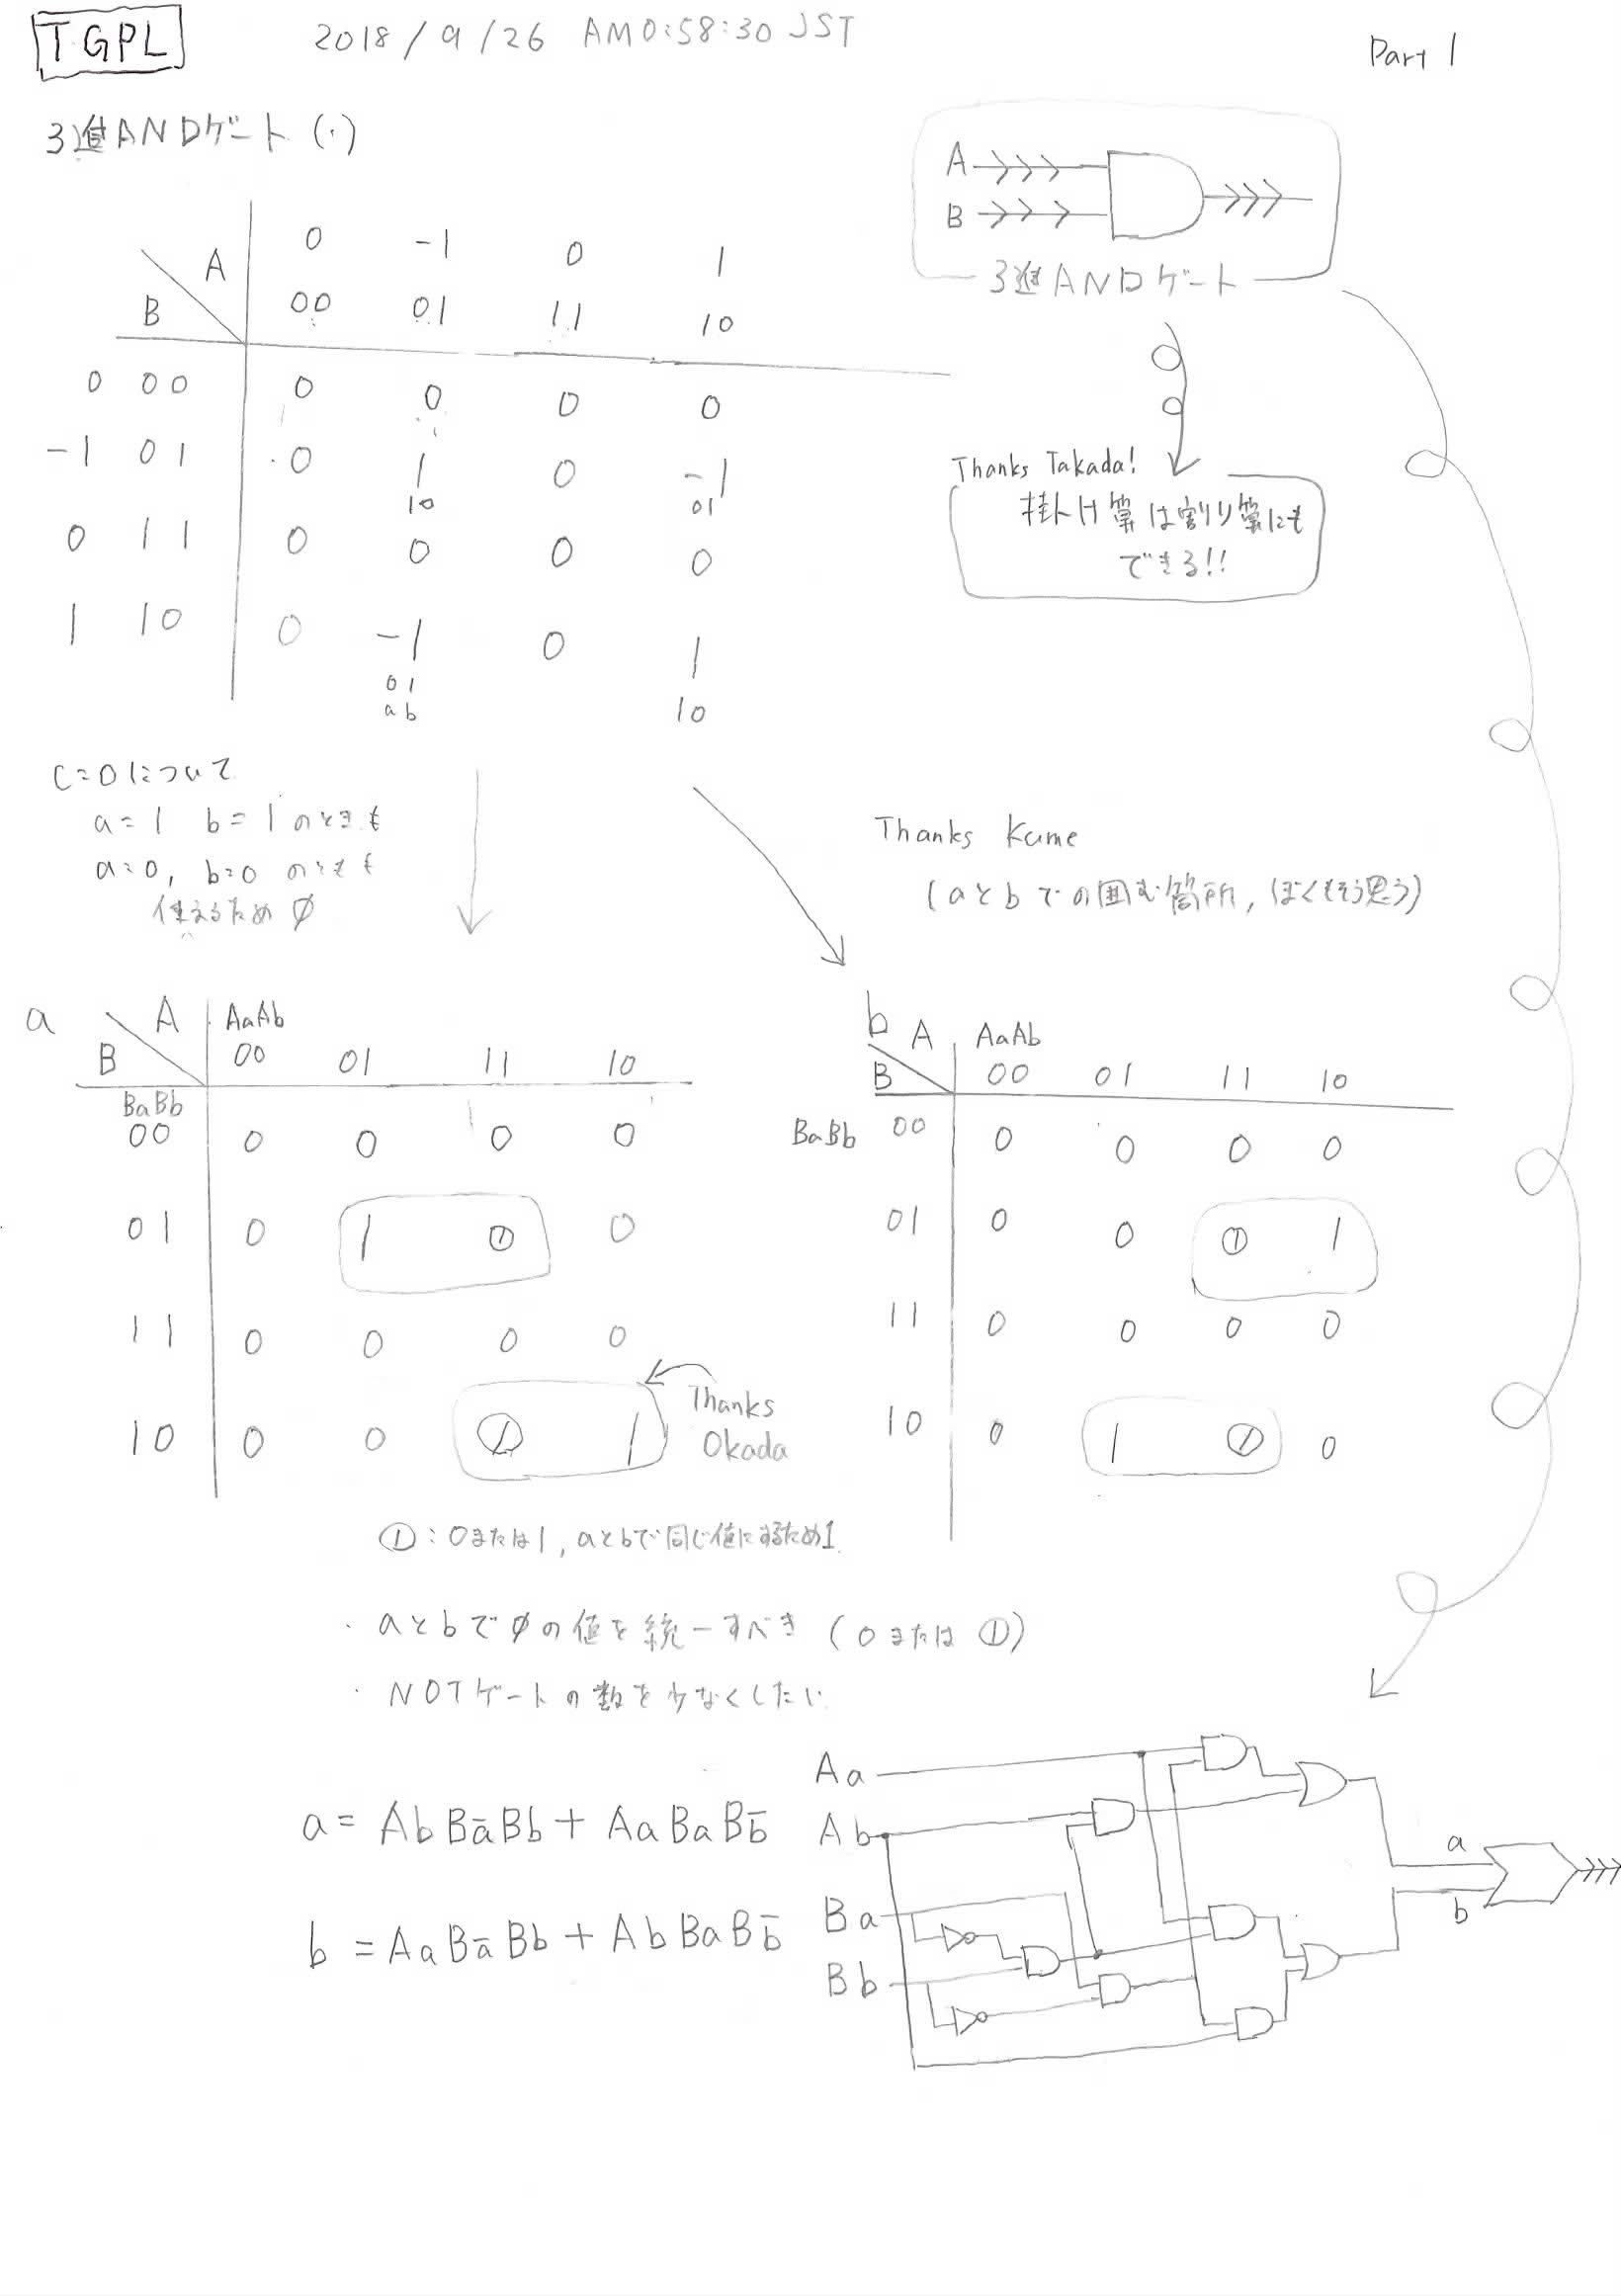 TGPL 2018/9/26 AM0:58:30 JST Part 1
3進ANDゲート (・)
A
B
3進ANDゲート
A 0 -1 0 1
B 00 01 11 10
0 00 0 0 0 0
-1 01 0 1 0 -1
10 01
0 11 0 0 0 0
1 10 0 -1 0 1
01
ab 10
Thanks Takada!
掛け算は割り算にも
できる!!
C=0について
a=1 b=1のときも
a=0, b=0のときも
使えるためφ
Thanks Kume
(aとbでの囲む箇所,ぼくもそう思う)
a
A AaAb
B 00 01 11 10
BaBb
00 0 0 0 0
01 0 1 ① 0
11 0 0 0 0
10 0 0 ① 1
Thanks
Okada
b A AaAb
B 00 01 11 10
BaBb 00 0 0 0 0
01 0 0 ① 1
11 0 0 0 0
10 0 1 ① 0
①:0または1,aとbで同じ値にするため1
・aとbでφの値を統一すべき (0または①)
・NOTゲートの数を少なくしたい
a= AbBāBb + AaBaBb̄
b =AaBāBb + AbBaBb̄
Aa
Ab
Ba
Bb
a
b